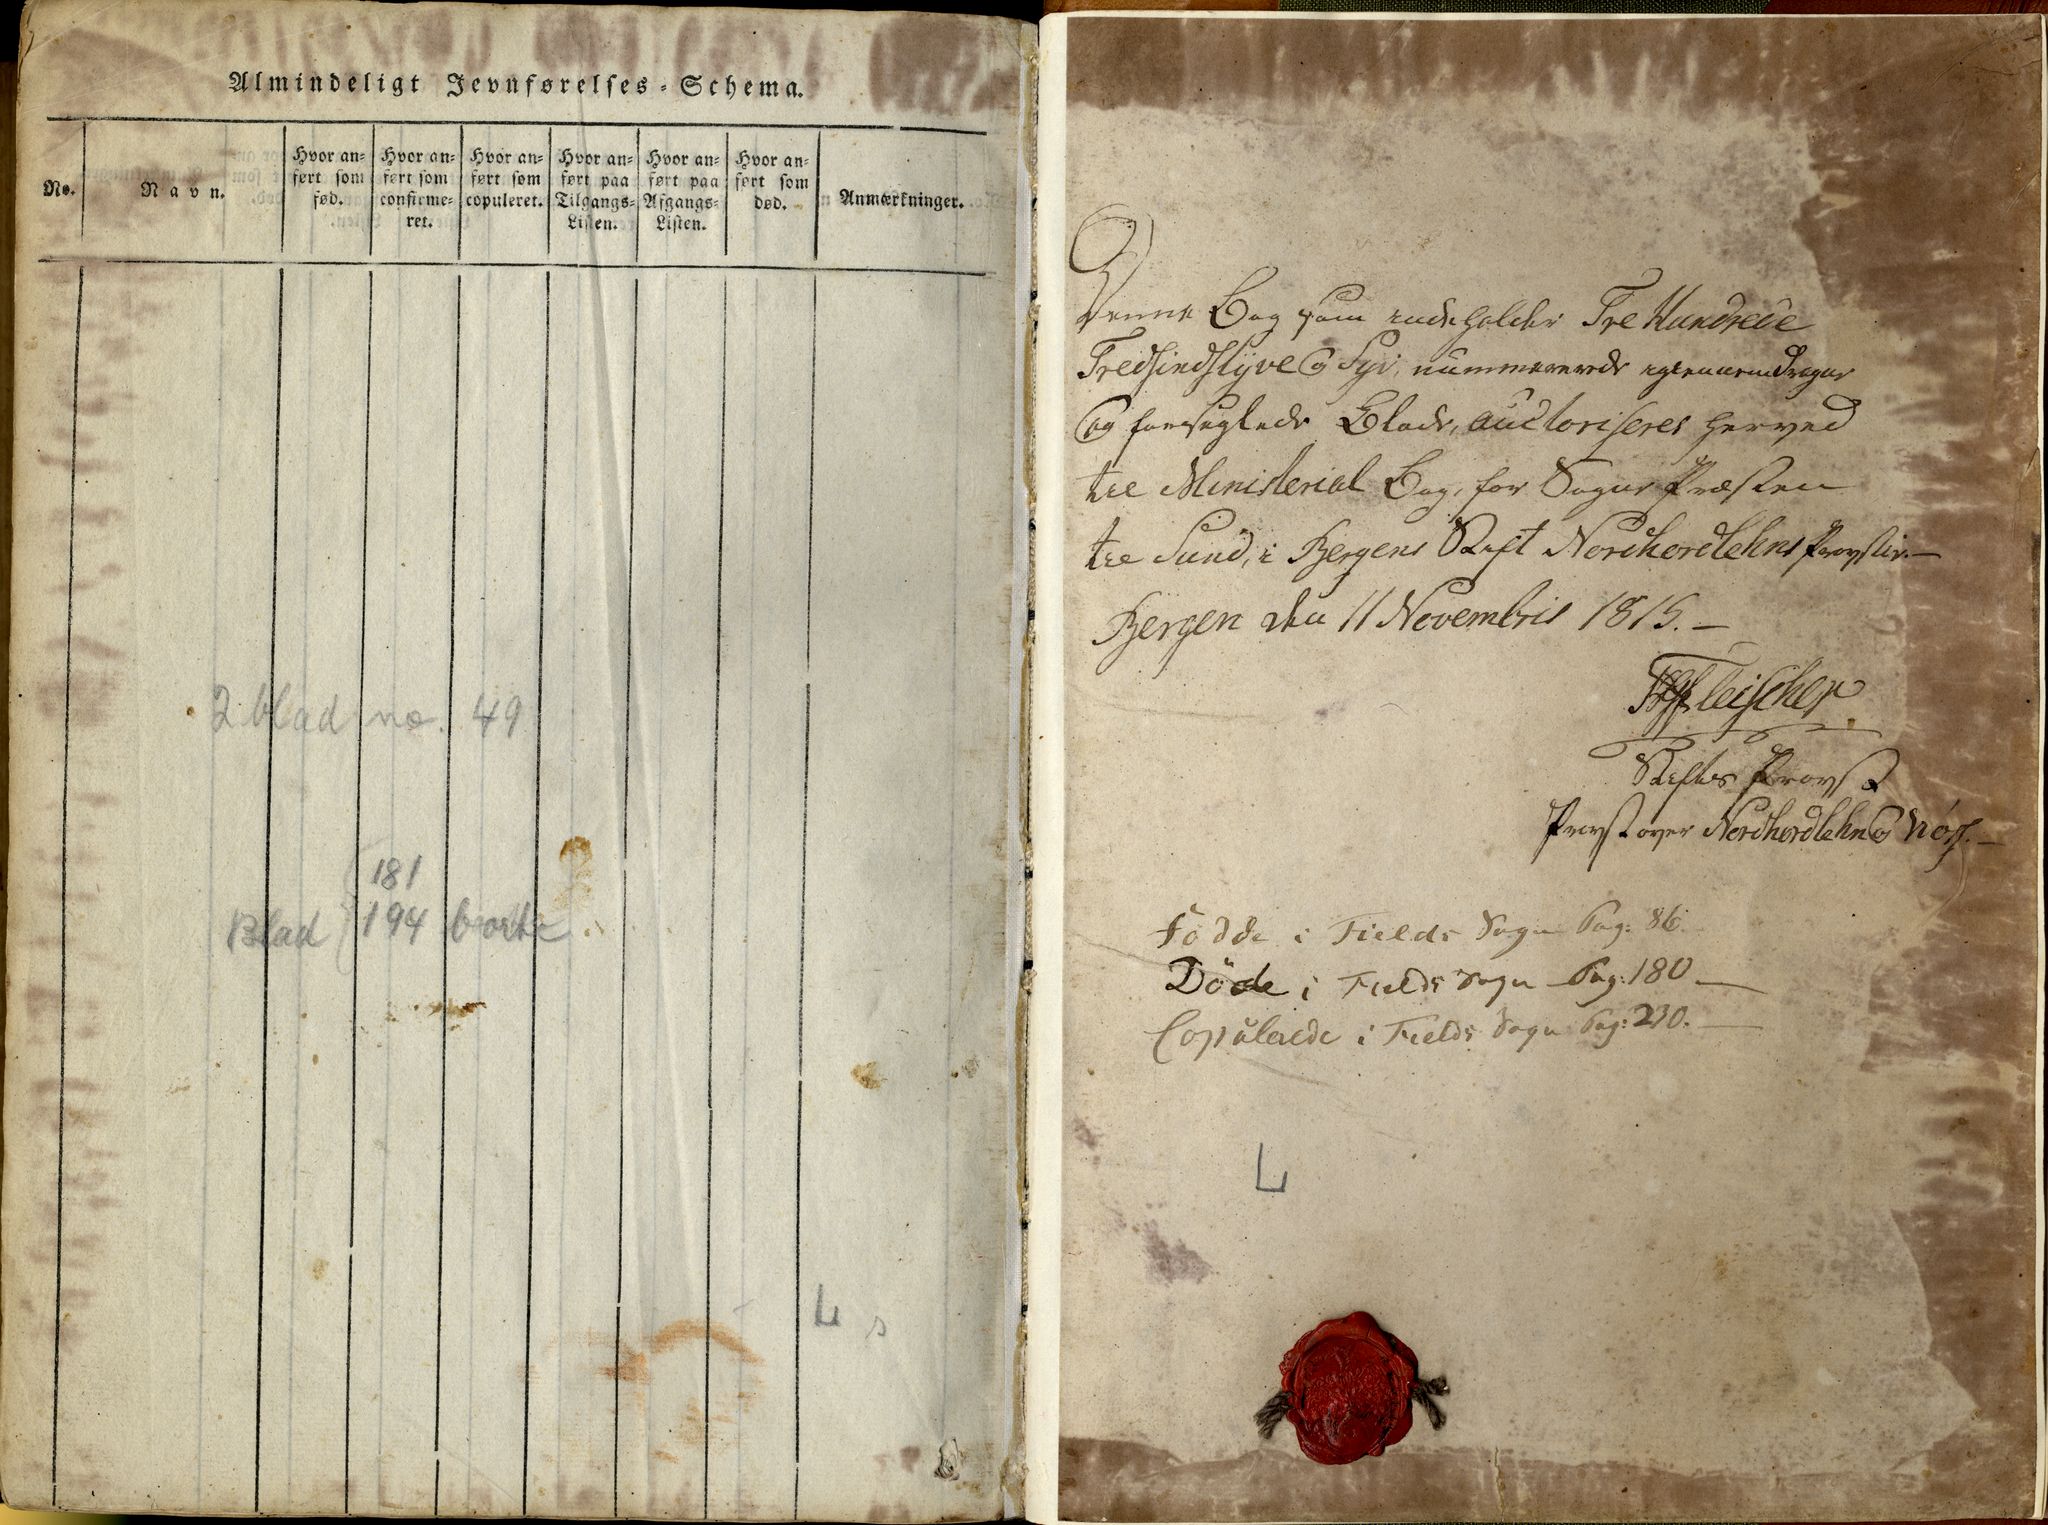 Almindeligt Jevnførelses-Schema.
No.
Navn.
Hvor an-
ført som
fød.
Hvor an-
ført som
confirme-
ret.
Hvor an-
ført som
copuleret.
Hvor an-
ført paa
Tilgangs-
Listen.
Hvor an-
ført paa
Afgangs-
Listen.
Hvor an-
ført som
død.
Anmærkninger.
2 blad no. 49
181
Blad 194 borte
L s
Denne Bog som indeholder Tre Hundrede
Tredsindstÿve og Syv, nummererede igiennemdragne
og forseglede Blade, auctoriseres herved
til Ministerial Bog, for Sogne Præsten
til Sund, i Bergens Stift Nordhordlehns Provstie.—
Bergen den 11 Novembris 1815.—
Fleischer
Stifts Provst
Provst over Nordhordlehn og
Födde i Fields Sogn Pag: 86.
Döde i Fields Sogn Pag: 180 —
Copulerede i Fields Sogn Pag: 230. —
L